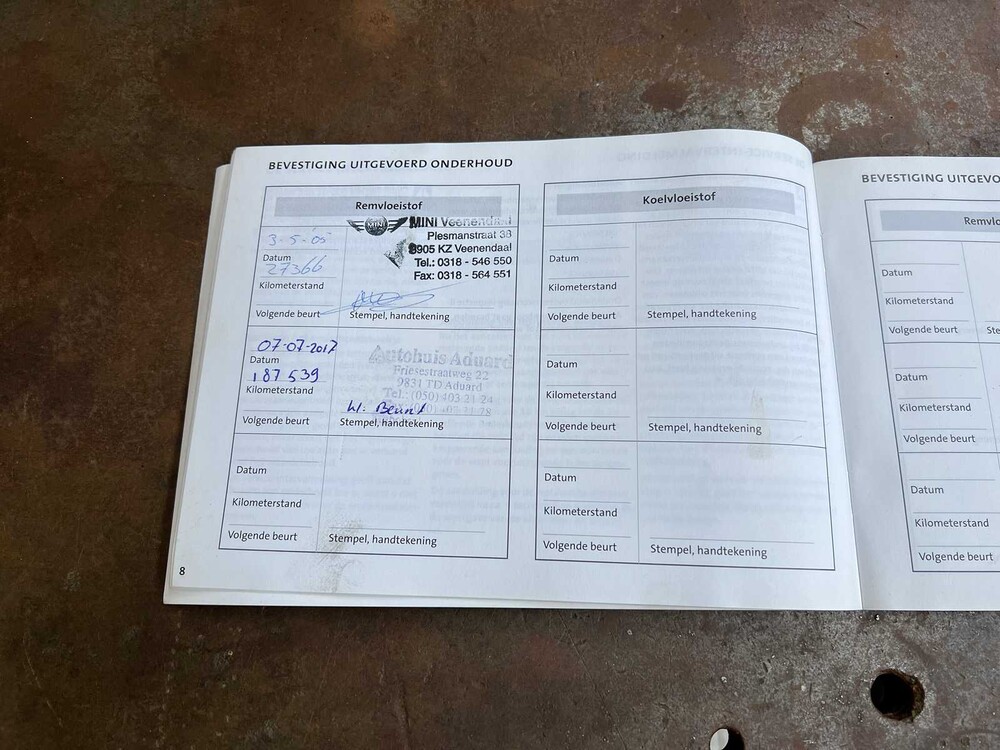 BEVESTIGING UITGEVOERD ONDERHOUD
Remvloeistof
MINI
MINI Veenendaal
Plesmanstraat 38
3905 KZ Veenendaal
Tel.: 0318 - 546 550
Fax: 0318 - 564 551
3-5-'05
Datum
27366
Kilometerstand
Volgende beurt
Stempel, handtekening
07-07-2017
Datum
187539
Kilometerstand
Volgende beurt
Autohuis Aduard
Friesestraatweg 22
9831 TD Aduard
Tel.: (050) 403 21 24
Stempel, handtekening
Datum
Kilometerstand
Volgende beurt
Stempel, handtekening
8
Koelvloeistof
Datum
Kilometerstand
Volgende beurt
Stempel, handtekening
Datum
Kilometerstand
Volgende beurt
Stempel, handtekening
Datum
Kilometerstand
Volgende beurt
Stempel, handtekening
BEVESTIGING UITGEVO
Remvlo
Datum
Kilometerstand
Volgende beurt
Ste
Datum
Kilometerstand
Volgende beurt
Datum
Kilometerstand
Volgende beurt